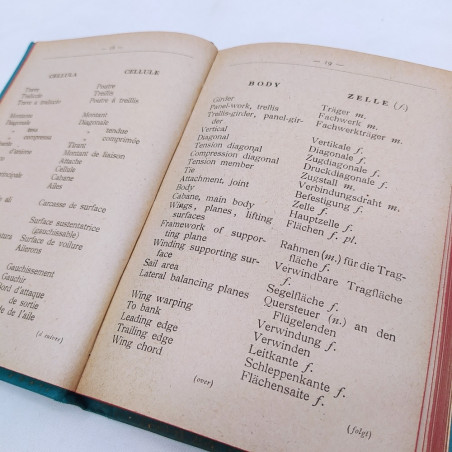 — 18 —
CELLULA CELLULE
Trave Poutre
Traliccio Treillis
Trave a traliccio Poutre à treillis
Montante Montant
Diagonale Diagonale
" tesa " tendue
" compressa " comprimée
Tirante Tirant
Montant de liaison
Attache
Cellula Cellule
principale Cabane
Ali Ailes
al Carcasse de surface
Surface sustentatrice
(gauchissable)
Surface de voilure
Ailerons
Gauchissement
Gauchir
Bord d'attaque
de sortie
de l'aile
(à suivre)
— 19 —
BODY ZELLE (f.)
Girder Träger m.
Panel-work, trellis Fachwerk m.
Trellis-girder, panel-gir-
der Fachwerkträger m.
Vertical Vertikale f.
Diagonal Diagonale f.
Tension diagonal Zugdiagonale f.
Compression diagonal Druckdiagonale f.
Tension member Zugstall m.
Tie Verbindungsdraht m.
Attachment, joint Befestigung f.
Body Zelle f.
Cabane, main body Hauptzelle f.
Wings, planes, lifting
surfaces Flächen f. pl.
Framework of suppor-
ting plane Rahmen (m.) für die Trag-
fläche f.
Winding supporting sur-
face Verwindbare Tragfläche
f.
Sail area Segelfläche f.
Lateral balancing planes Quersteuer (n.) an den
Flügelenden
Wing warping Verwindung f.
To bank Verwinden
Leading edge Leitkante f.
Trailing edge Schleppenkante f.
Wing chord Flächensaite f.
(over) (folgt)